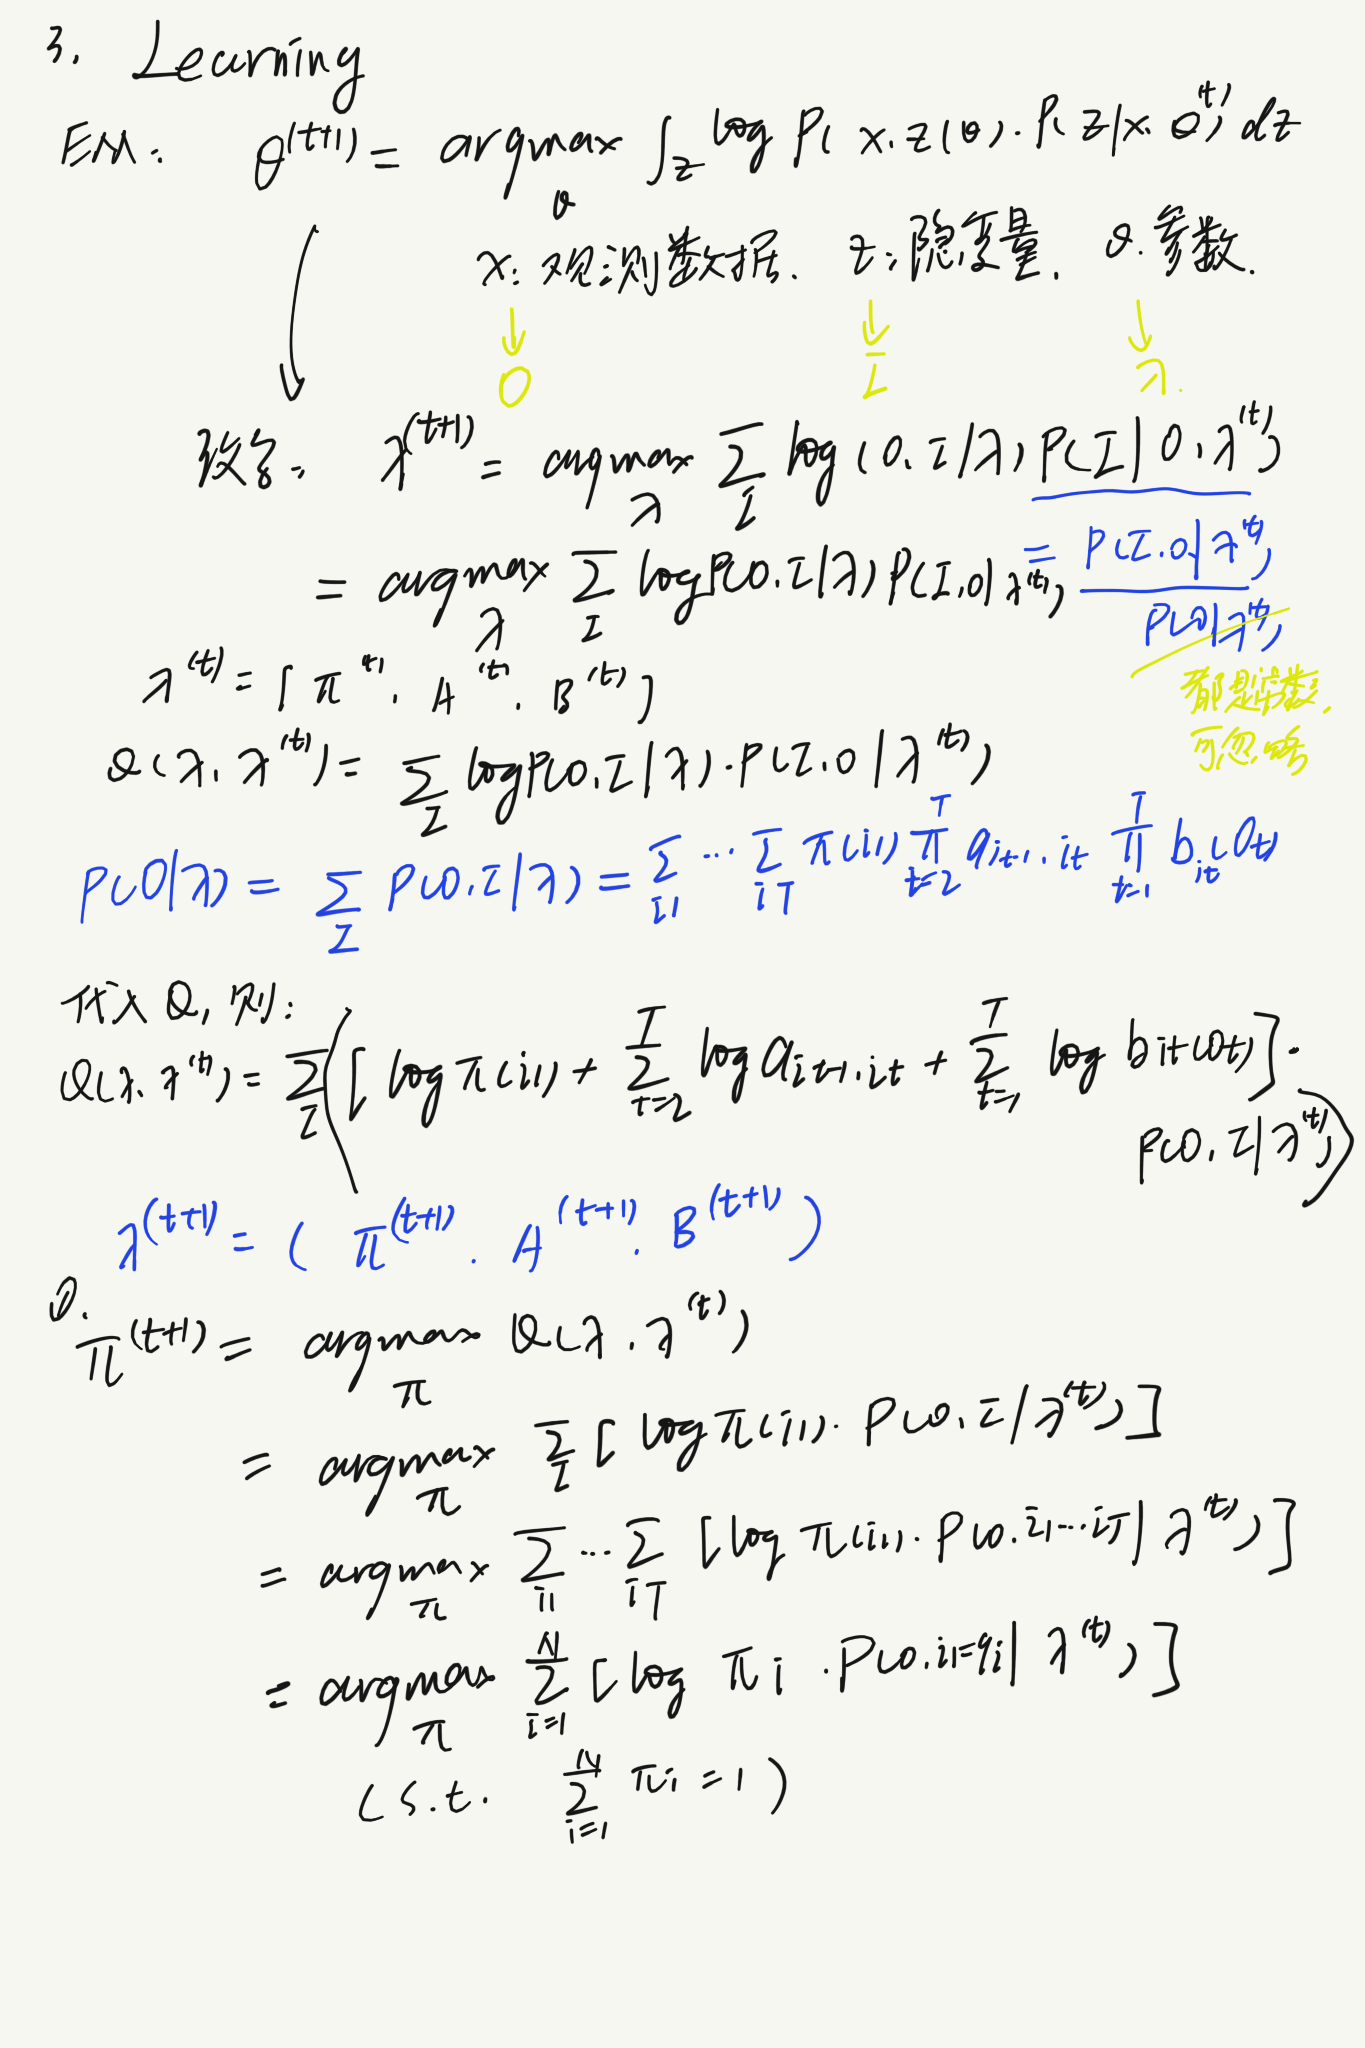 3. Learning
EM: θ^(t+1) = argmax_θ ∫_z log P(x, z|θ) · P(z|x, θ^(t)) dz
x: 观测数据. z: 隐变量. θ. 参数.
↓ ↓ ↓
O I λ.
改名: λ^(t+1) = argmax_λ Σ_I log (O, I|λ) P(I|O, λ^(t))
= P(I, O|λ^(t)) / P(O|λ^(t))
= argmax_λ Σ_I log P(O, I|λ) P(I, O|λ^(t))
都是常数,
可忽略
λ^(t) = [π^(t), A^(t), B^(t)]
Q(λ, λ^(t)) = Σ_I log P(O, I|λ) · P(I, O|λ^(t))
P(O|λ) = Σ_I P(O, I|λ) = Σ_i1 ··· Σ_iT π(i1) Π_{t=2}^T a_{it-1, it} Π_{t=1}^T b_it(Ot)
代入 Q, 则:
Q(λ, λ^(t)) = Σ_I ([log π(i1) + Σ_{t=2}^T log a_{it-1, it} + Σ_{t=1}^T log b_it(Ot)] ·
P(O, I|λ^(t)))
λ^(t+1) = (π^(t+1), A^(t+1), B^(t+1))
①.
π^(t+1) = argmax_π Q(λ, λ^(t))
= argmax_π Σ_I [log π(i1) · P(O, I|λ^(t))]
= argmax_π Σ_i1 ··· Σ_iT [log π(i1) · P(O, i1 ··· iT|λ^(t))]
= argmax_π Σ_{i=1}^N [log πi · P(O, i1=qi|λ^(t))]
(s.t. Σ_{i=1}^N πi = 1)